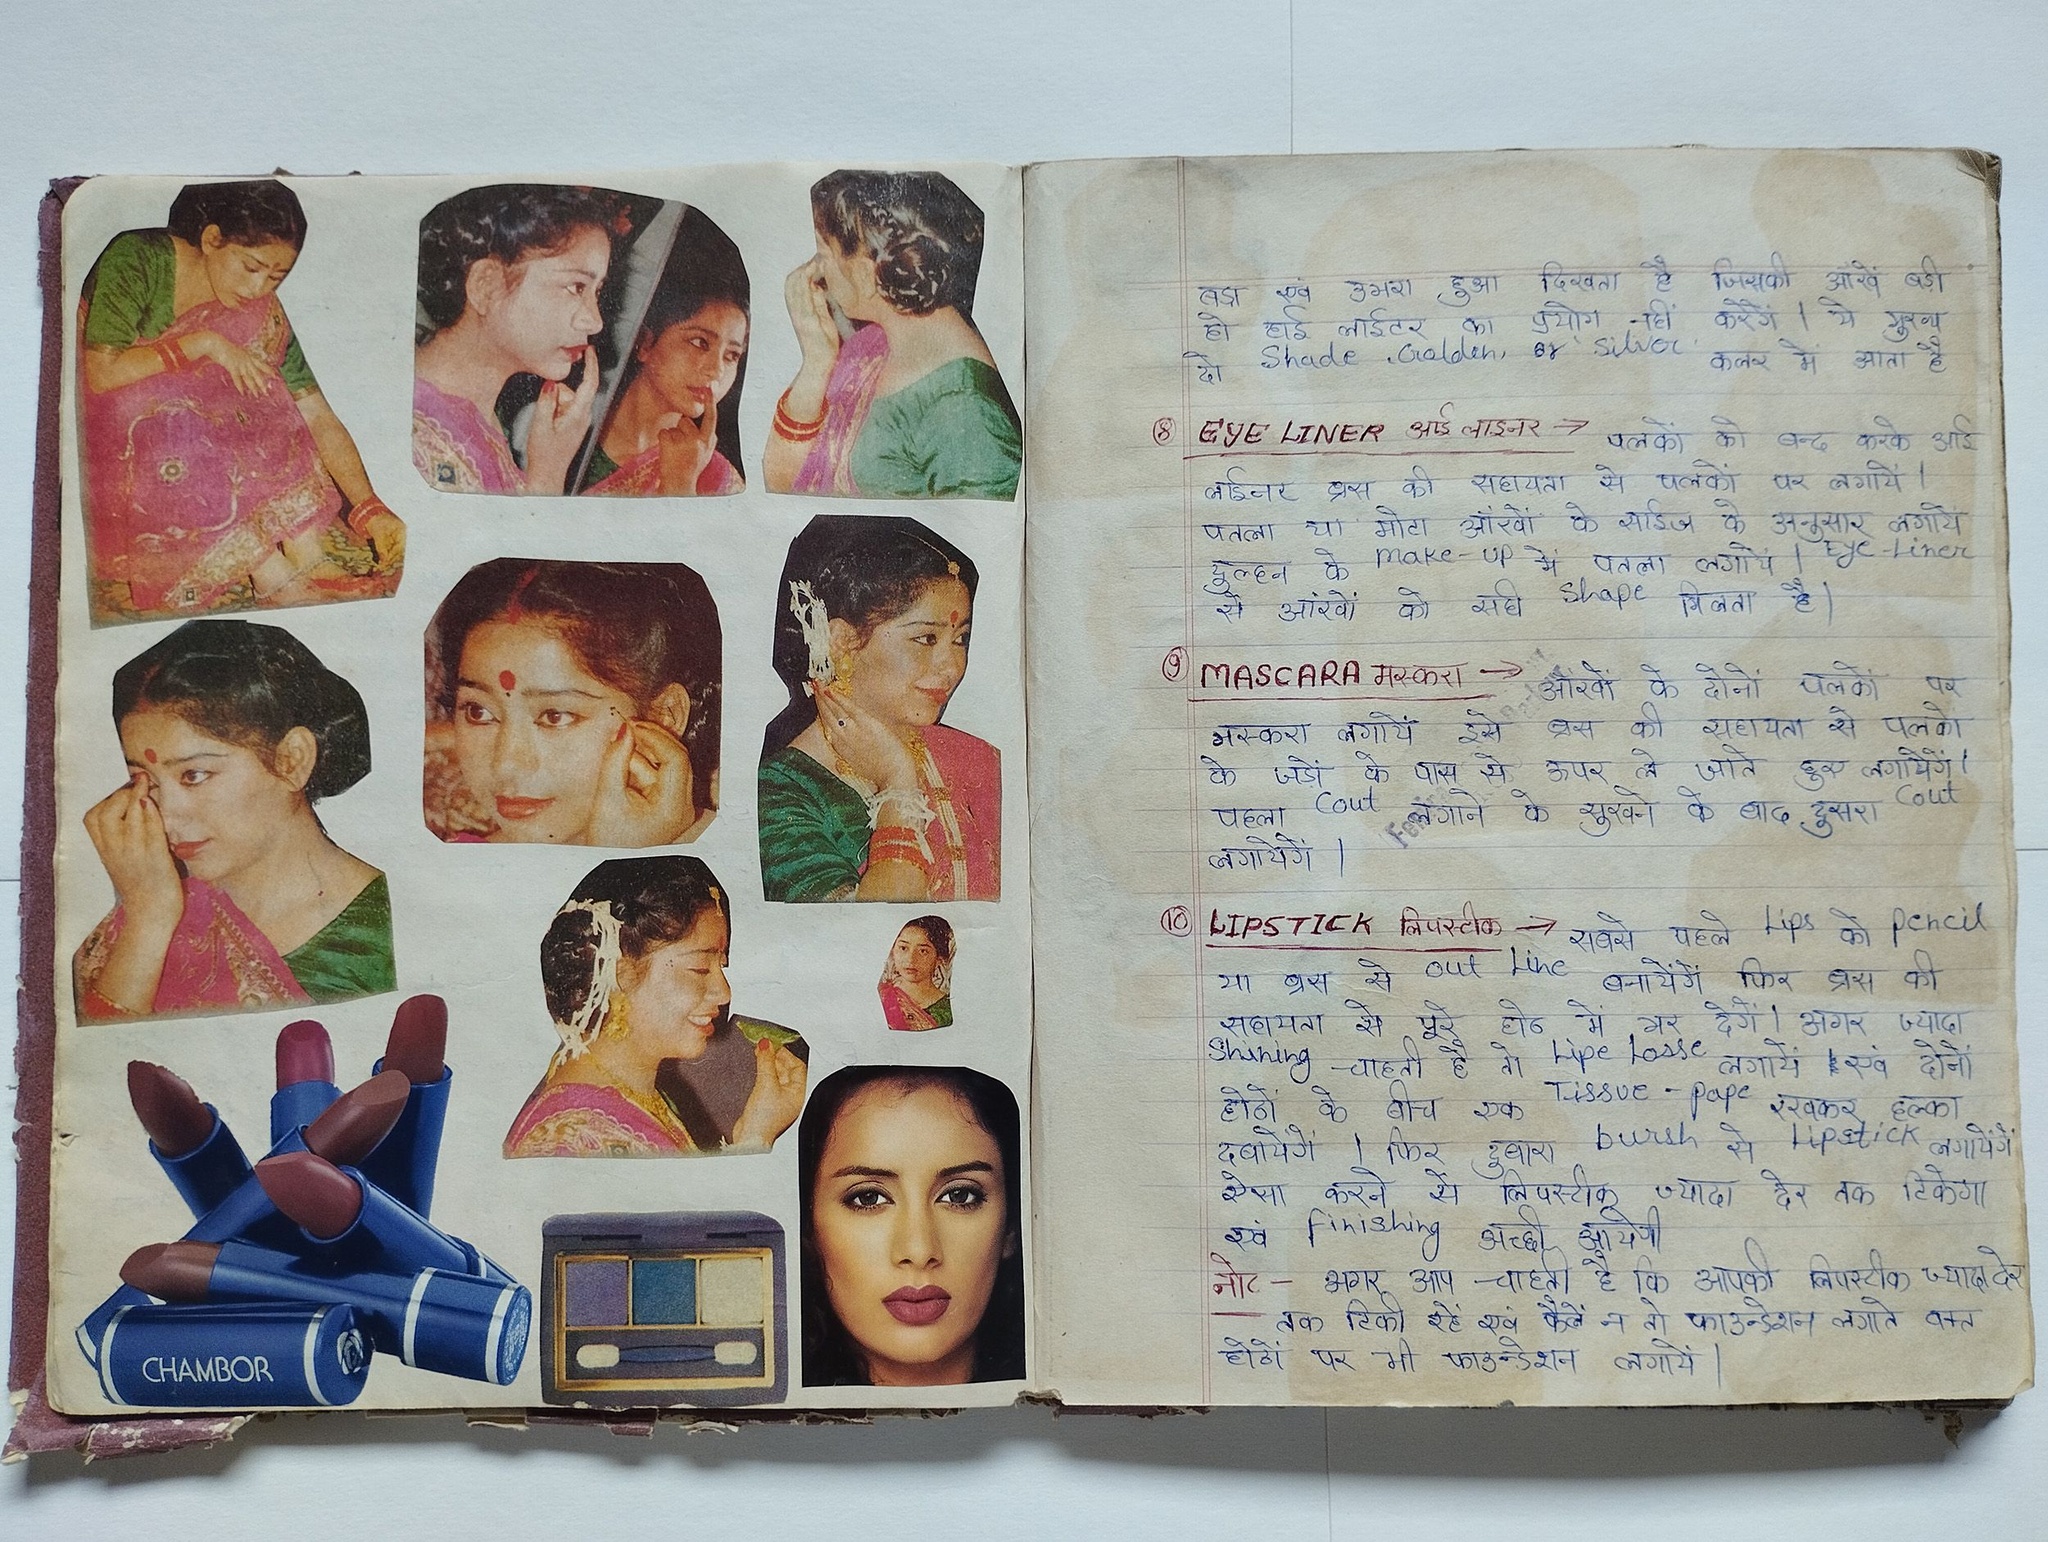 CHAMBOR
बड़ा एवं उभरा हुआ दिखता है जिसकी आंखें बड़ी
हो हाई लाईटर का प्रयोग नहीं करेगें । ये मुख्य
दो Shade Golden, or Silver कलर में आता है
⑧ EYE LINER आई लाइनर → पलकों को बन्द करके आई
लाईनर ब्रस की सहायता से पलकों पर लगायें ।
पतला या मोटा आंखों के साईज के अनुसार लगायें
दुल्हन के make-up में पतला लगायें । Eye-Liner
से आंखों को सही Shape मिलता है ।
⑨ MASCARA मस्करा → आंखों के दोनों पलकों पर
मस्करा लगायें इसे ब्रस की सहायता से पलको
के जड़ों के पास से ऊपर ले जाते हुए लगायेगें ।
पहला Cout लगाने के सुखने के बाद दुसरा Cout
लगायेगें ।
⑩ LIPSTICK लिपस्टीक → सबसे पहले Lips को pencil
या ब्रस से out Line बनायेगें फिर ब्रस की
सहायता से पूरे होठ में भर देगें । अगर ज्यादा
Shining चाहती है तो Lipe Losse लगायें एवं दोनों
होठों के बीच एक Tissue-pape रखकर हल्का
दबायेगें । फिर दुबारा bursh से Lipstick लगायेगें
ऐसा करने से लिपस्टीक ज्यादा देर तक टिकेगा
एवं finishing अच्छी आयेगी
नोट - अगर आप चाहती है कि आपकी लिपस्टीक ज्यादा देर
तक टिकी रहें एवं फैलें न तो फाउन्डेशन लगाते वक्त
होठों पर भी फाउन्डेशन लगायें ।